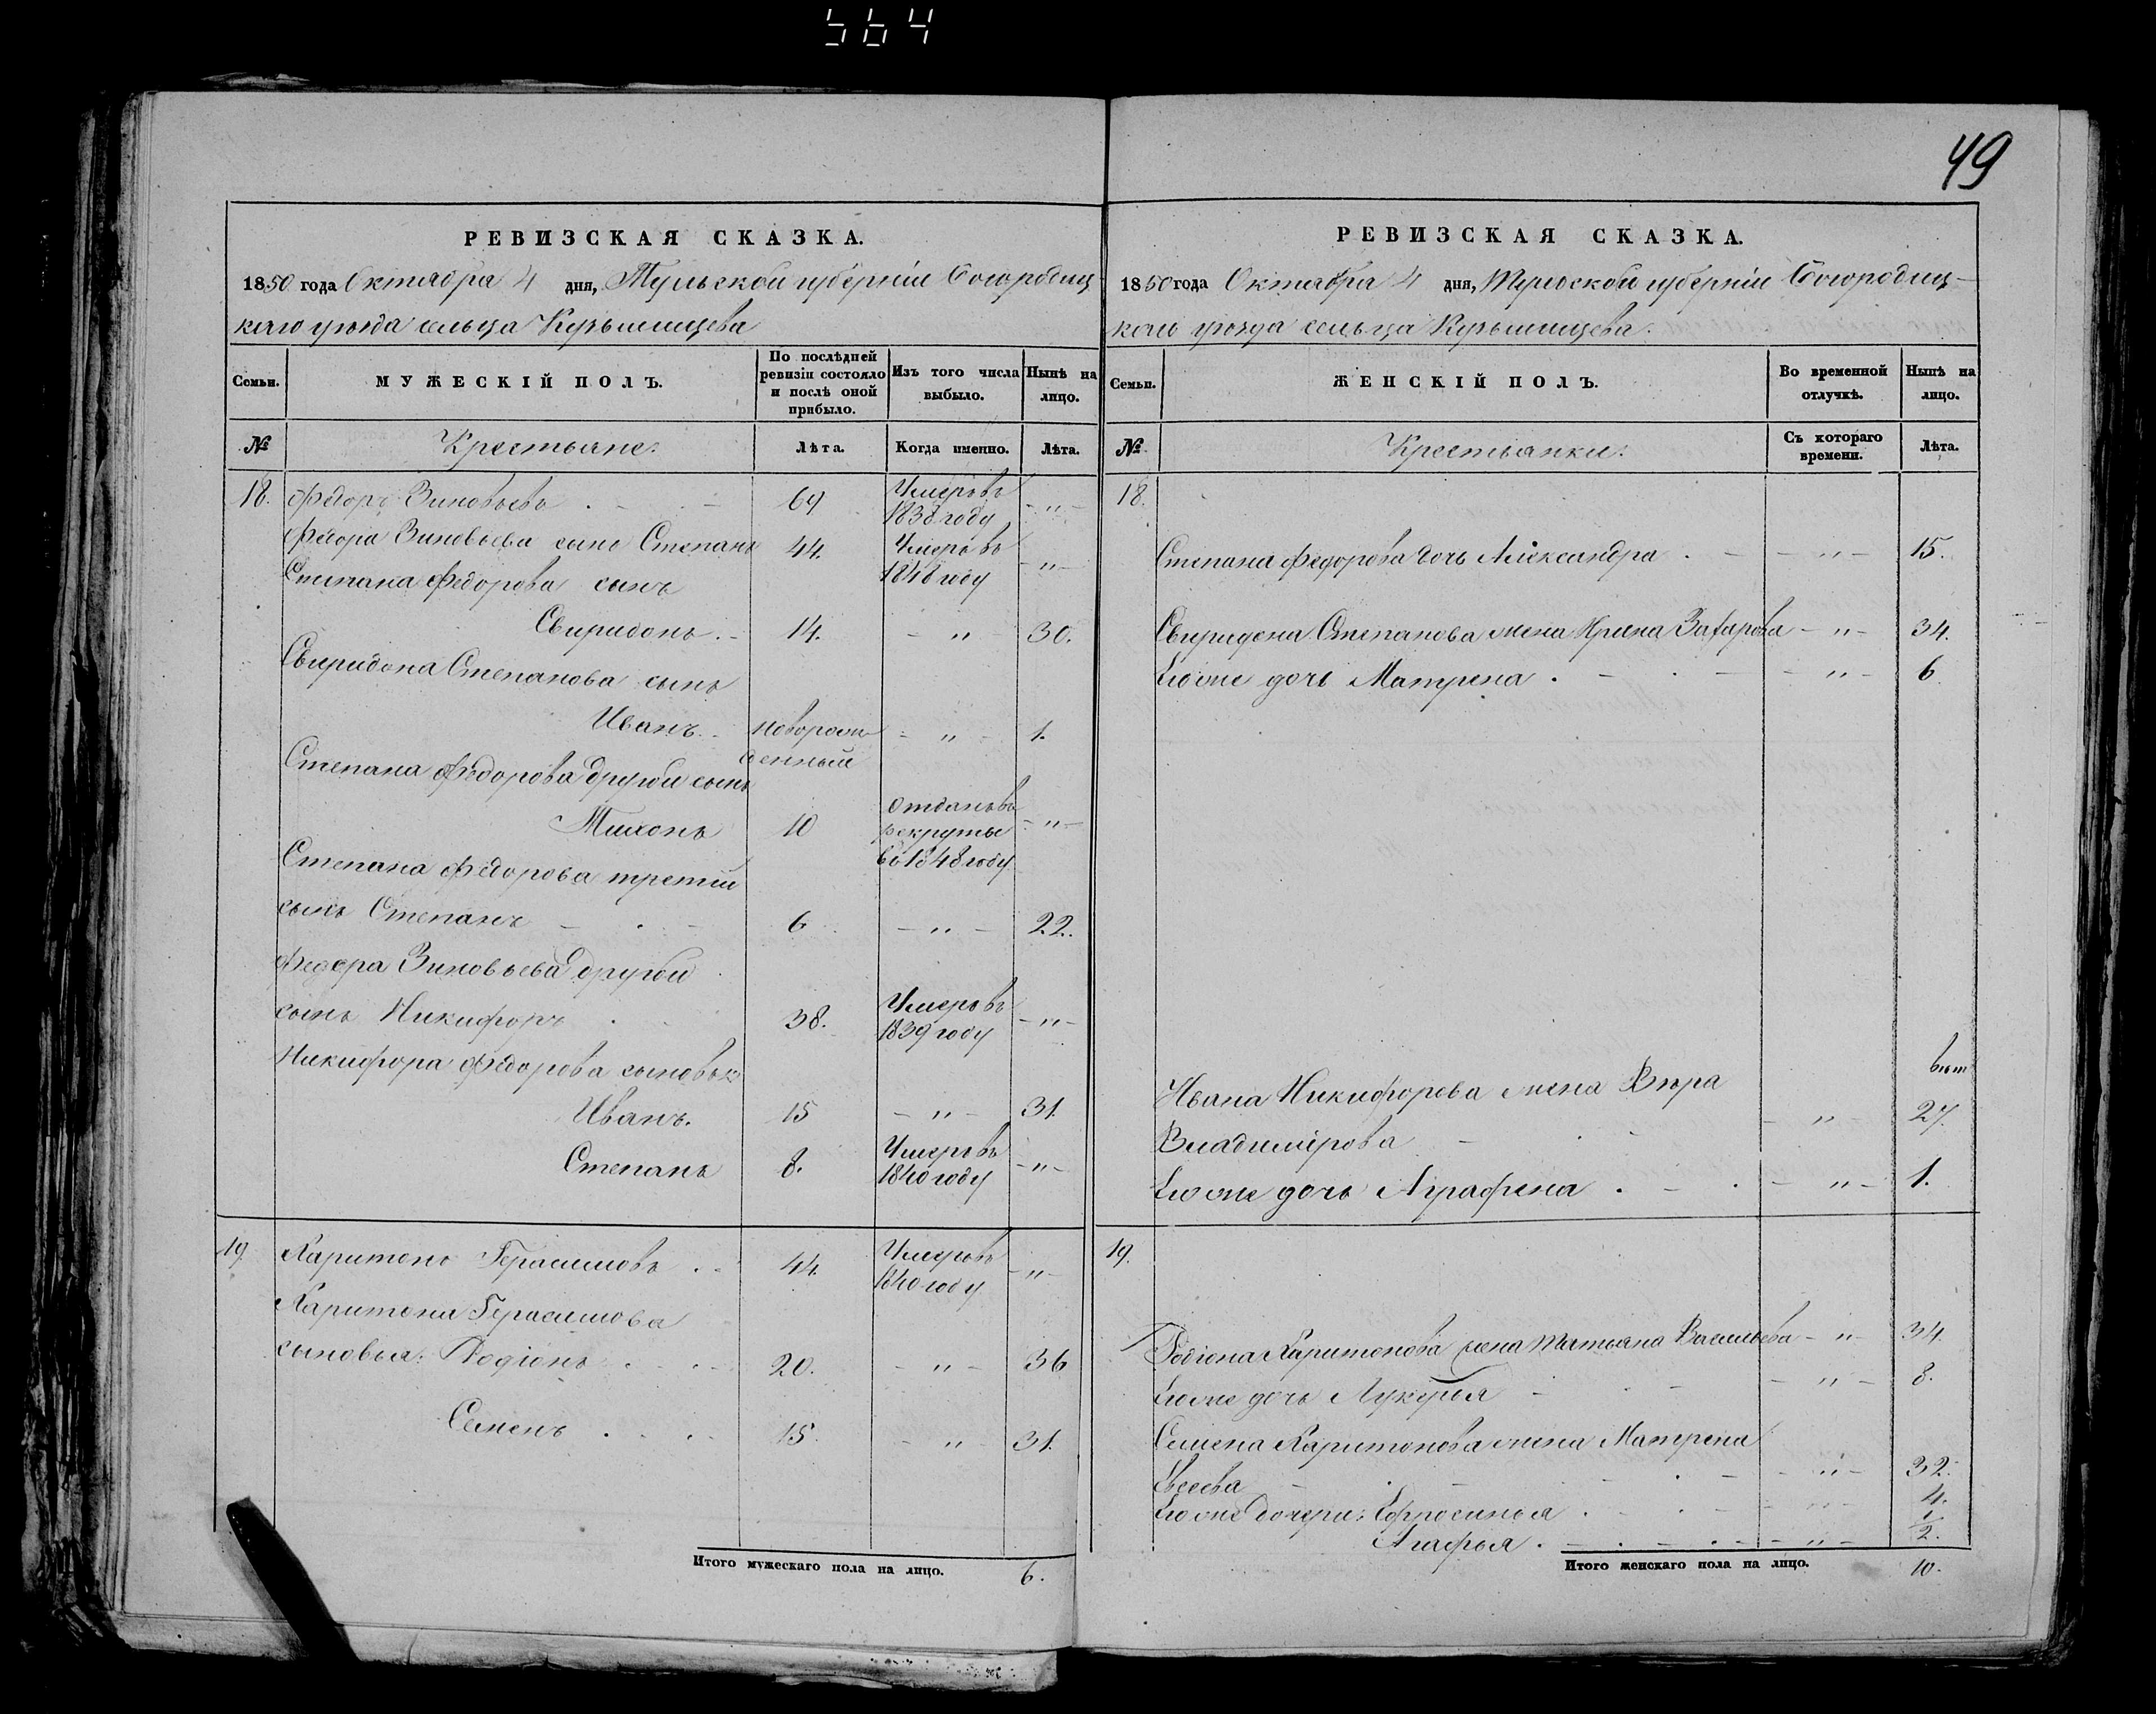 564
49
РЕВИЗСКАЯ СКАЗКА.
1850 года Октября 4 дня, Тульской губерніи Богородиц-
каго уѣзда сельца Курьшищева
Семьи. МУЖЕСКІЙ ПОЛЪ. По послѣдней ревизіи состояло и послѣ оной прибыло. Изъ того числа выбыло. Нынѣ на лицо.
№ Крестьяне. Лѣта. Когда именно. Лѣта.
18. Федоръ Зиновьевъ . - 69 Умеръ въ 1838 году - " -
Федора Зиновьева сынъ Степанъ 44. Умеръ въ 1848 году - " -
Степана Федорова сынъ
Свиридонъ. - 14. - " 30.
Свиридона Степанова сынъ
Иванъ. - новорож-
денный - " - 1.
Степана Федорова другой сынъ
Тихонъ 10 Отданъ въ рекруты въ 1848 году - " -
Степана Федорова третій
сынъ Степанъ - . - 6 - " - 22.
Федора Зиновьева другой
сынъ Никифоръ . 38. Умеръ въ 1839 году - " -
Никифора Федорова сыновья
Иванъ. 15 - " - 31.
Степанъ 8. Умеръ въ 1840 году - " -
19. Харитонъ Герасимовъ . . 44. Умеръ въ 1840 году - " -
Харитона Герасимова
сыновья: Родіонъ . . . 20. - " - 36
Семенъ . . . 15. - " - 31.
Итого мужескаго пола на лицо. 6.
РЕВИЗСКАЯ СКАЗКА.
1850 года Октября 4 дня, Тульской губерніи Богородиц-
каго уѣзда сельца Курьшищева.
Семьи. ЖЕНСКІЙ ПОЛЪ. Во временной отлучкѣ. Нынѣ на лицо.
№ Крестьянки. Съ котораго времени. Лѣта.
18.
Степана Федорова дочь Александра . - - " - 15.
Свиридона Степанова жена Ирина Захарова - " - 34.
Его же дочь Матрена . - . - - " - 6
Ивана Никифорова жена Вѣра
Владимірова - - " - 27.
Его же дочь Аграфена . - . - " - 1.
19.
Родіона Харитонова жена Татьяна Васильева - " - 34.
Его же дочь Лукерья - - - " - 8.
Семена Харитонова жена Матрена
Евсеева - . - " - 32.
Его же дочери: Ефросинья . . - - " - 4.
Агафья . - . - . - - " - 1/2.
Итого женскаго пола на лицо. 10.